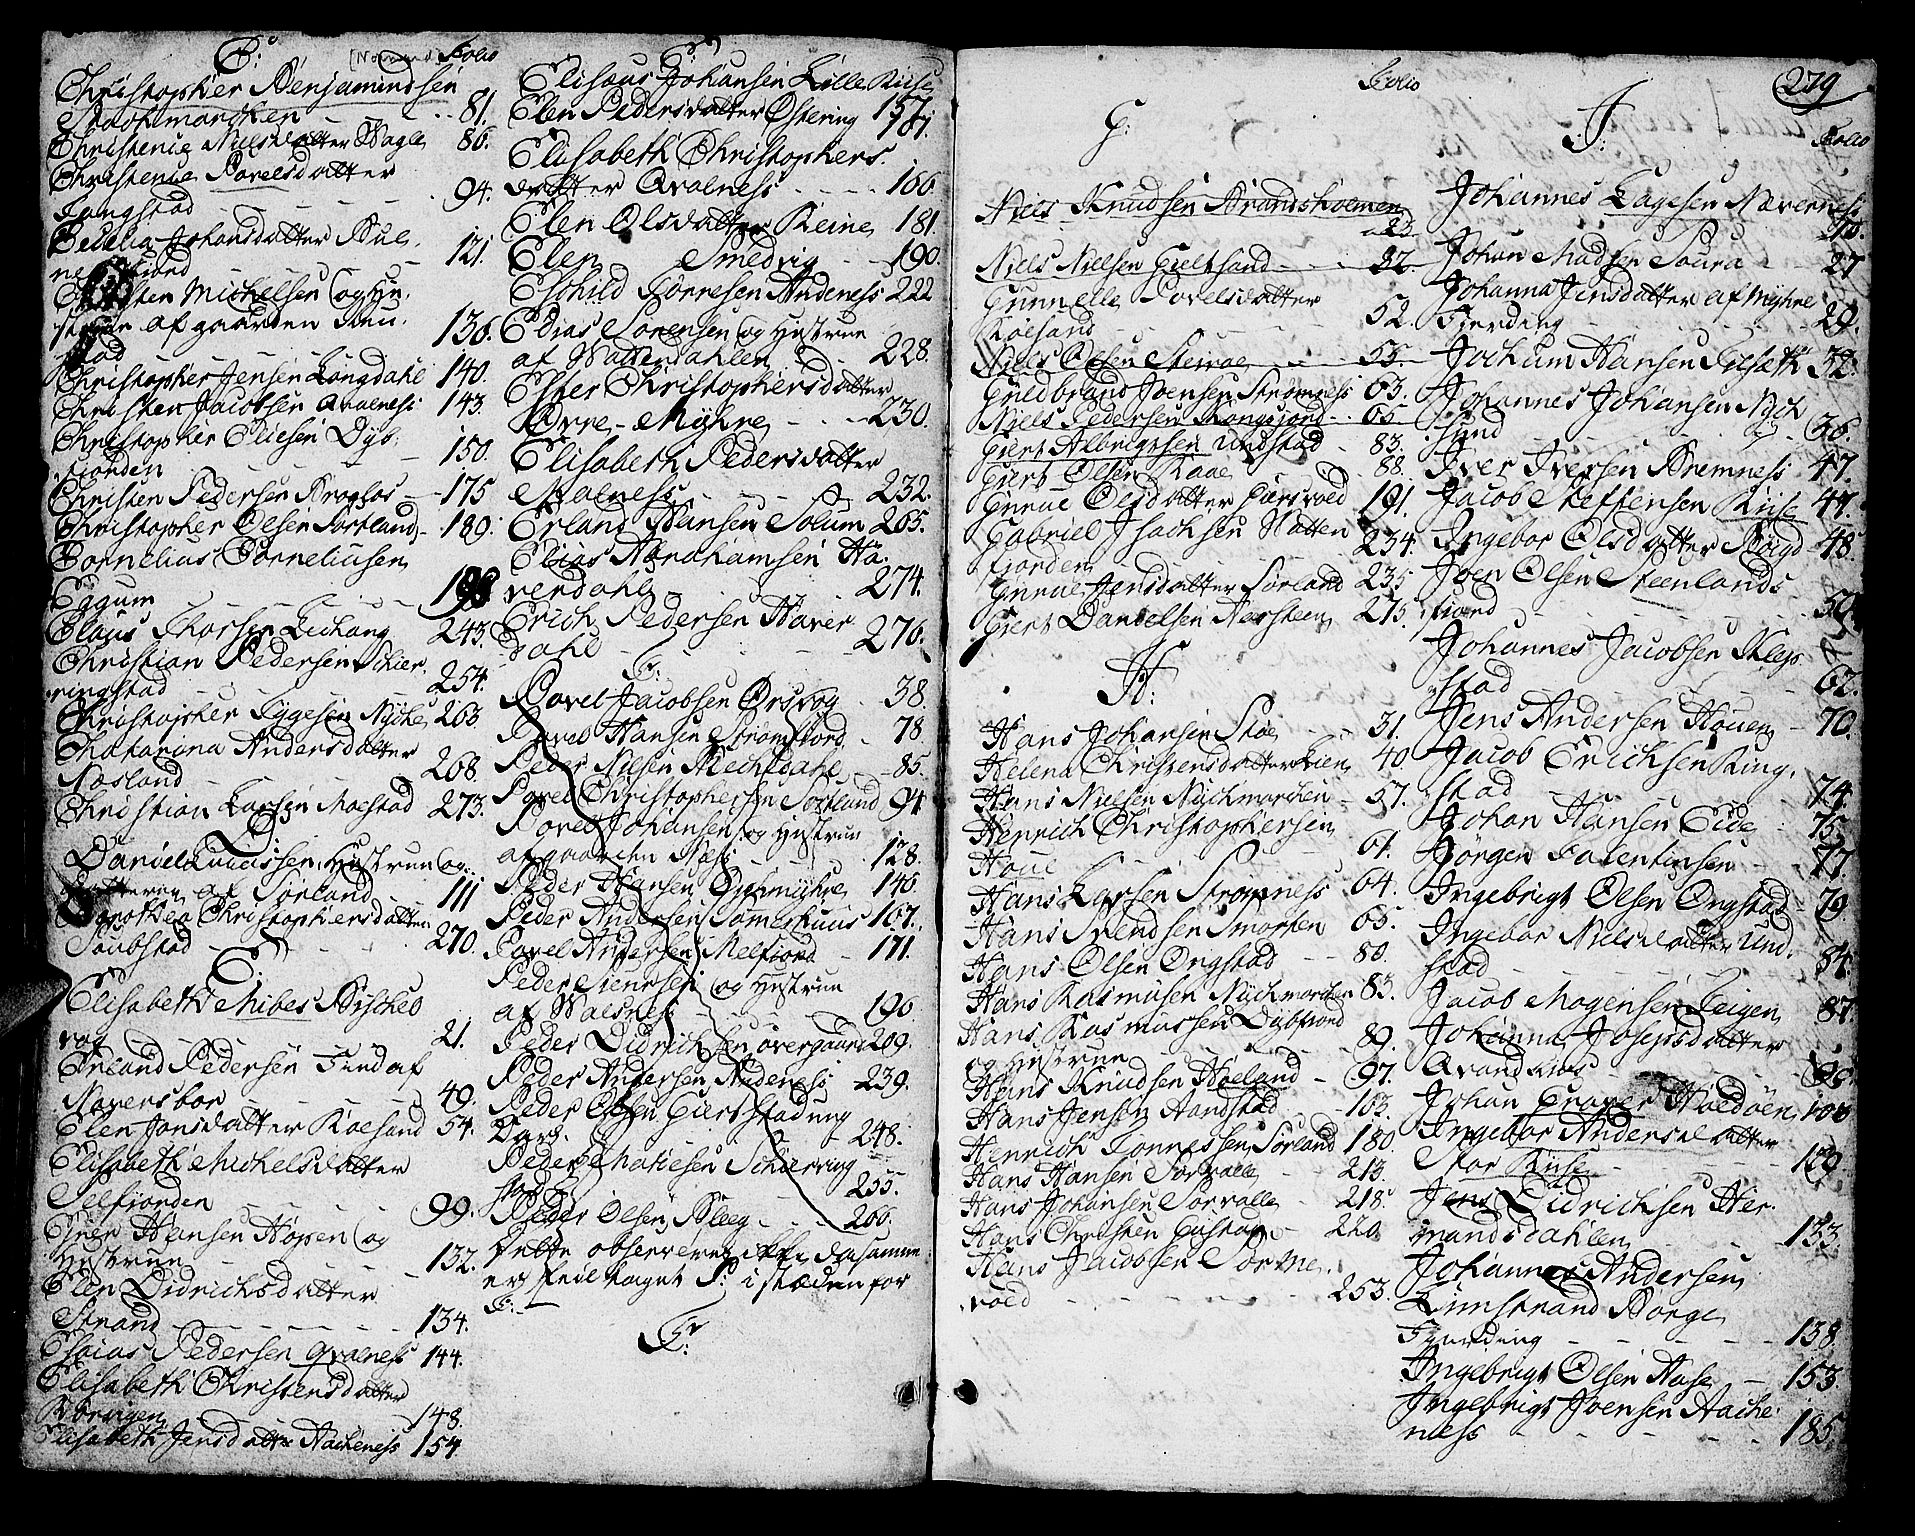 C:
[Normand] Folio
Christopher Benjaminsen
Stochmarcken - - - 81.
Christenie Nielsdatter Wagle 86.
Christenie Povelsdatter
Langstad - - - - - 94.
Cecelia Johansdatter Bul-
nesfiord - - - 121.
Christen Michelsen (og Hu-
strue af gaarden
stad 136.
Christopher Jensen Longdahl 140.
Christen Jacobsen Qvalness 143.
Christopher Eliesen Dyb-
fiorden - - - 150.
Christen Pedersen - 175
Christopher Olsen Sortland - 189.
Cornelius Corneliusen
Eggum 198
Claus Thorsen Lechang 243.
Christian Pedersen Schier-
ringstad - - - 254.
Christopher Tygesen Nyche 263
Chatarina Andersdatter
Naesland - - - 268.
Christian Larsen Maestad 273.
D
Daniel Hustrue (og
Datteren af Sørland 111
Dorothea Christophersdatter
Taubstad - - - 270.
E:
Elisabeth Mibes Bischeo
vog - - - 21.
Erland Pedersen Fund af
Naversbor - - - 49.
Elen Jonsdatter Roesand 54.
Elisabeth Michelsdatter
Selfiorden - - - 99.
Hansen Hopen (og
Hustrue - - - 132.
Elen Didrichsdatter
Strand - - - 134.
Esaias Pedersen Qvalness 144.
Elisabeth Christensdatter
Børvigen - - - 148.
Elisabeth Jensdatter Hacheness 154
E:
Elisæus Johansen Lille Riise
157.
Elen Pedersdatter Østering 161.
Elisabeth Christophers-
datter Qvalness - - - 166.
Elen Olsdatter Reine 181.
Elen Smedvig - - 190.
Eschild Torresen Andeness 222
Edias Sorensen (og Hustrue
af Watterdahlen - - 228.
Ester Christophersdatter
Øvre-Myhre - - - 230.
Elisabeth Pedersdatter
Malness - - - 232.
Erland Hansen Solum 265.
Elias Abrahamsen Ha-
verdahl - - - 274.
Erich Pedersen Haver
dahl - - - 276.
F:
Povel Jacobsen Orsvog - 38.
Povel Hansen Strømfiord - 78
Peder Nilsen Mechtdahl - 85.
Povel Christophersen Sortland 94
Povel Johansen (og Hustrue
af gaarden Ness - - 128.
Peder Hansen Opmyhre 146.
Peder Andersen Sømerhuus 167.
Povel Andersen Melfiord - 171.
Peder (og Hustrue
af Walsness - - - 190
Peder Didrichsen Overgaard 209.
Peder Andersen Andeness 239.
Peder Olsen Giertstad ung
Dars. - - 248.
Peder Matiesen Schierring
stad 255.
Peder Olsen Kleeg - - - 266.
Dette observeres icke da samme
er feil taget P: i stæden for
F:
F:
Folio
G:
Niels Knudsen Brandsholmen
23
Niels Nielsen Gieltsand - - 32.
Gunnelle Povelsdatter
Roesand - - - 52.
Niels Olsen Steiroe - - 55.
Guldbrand Joensen Strømness 63.
Niels Pedersen Kongsjord - - 66
Giert Albrigtsen Undstad - 83.
Giert Olsen Raae - - 88.
Gunue Olsdatter 191.
Gabriel Isachsen Watten
fiorden - - - 234.
Gunue Jensdatter Sørland 235
Giert Danielsen Norsteen 275.
H:
Hans Johansen Støe - - 31.
Helena Christensdatter Lien 40
Hans Nielsen Nychmarcken - 57.
Henrich Christophersen
Houe - - - 61.
Hans Larsen Strømness 64.
Hans Svendsen Smorten 65.
Hans Olsen Ongstad - - 80.
Hans Rasmusen Nychmarcken 83.
Hans Rasmussen Dybfiord
og Hustrue - - - 89.
Hans Knudsen Hoeland - 97.
Hans Jensen Aandstad - 103.
Henrich Tonnessen Sørland 180.
Hans Hansen Sorvalle - - 213.
Hans Johansen Sorvalle - - 218.
Hans Christen - 220.
Hans Jacobsen Sorme-
roed - - - 253.
279
J:
Folio
Johannes Lagesen Næverness
18.
Johan Madsen Soura - 27
Johanna Jensdatter af Myhre
Fierding - - - 29.
Jochum Hansen 32.
Johannes Johansen Nych
sund - - - 36.
Iver Iversen Bremness 47.
Jacob Steffensen Riise 47.
Ingebor Olsdatter 48
Joen Olsen Steenlands
fiord - - - 50.
Johannes Jacobsen Klep
stad - - - 62.
Jens Andersen Houen - 70.
Jacob Erichsen Ring-
stad - - - 74.
Johan Hansen Eide - 75.
Jørgen Falentinsen - 77.
Ingebrigt Olsen Ongstad - 79
Ingebor Nielsdatter Und-
stad - - - 84.
Jacob Mogensen Leigen 87.
Johanna Josepsdatter
- - -
Johan 100
Ingebor Andersdatter
Stor Riise - - -
Jens Didrichsen Her-
mandsdahlen - - - 133.
Johannes Andersen
Limstrand Borge
Fierding - - - 138.
Ingebrigt Olsen Aase - 153
Ingebrigt Joensen Hache-
ness - - - 185.